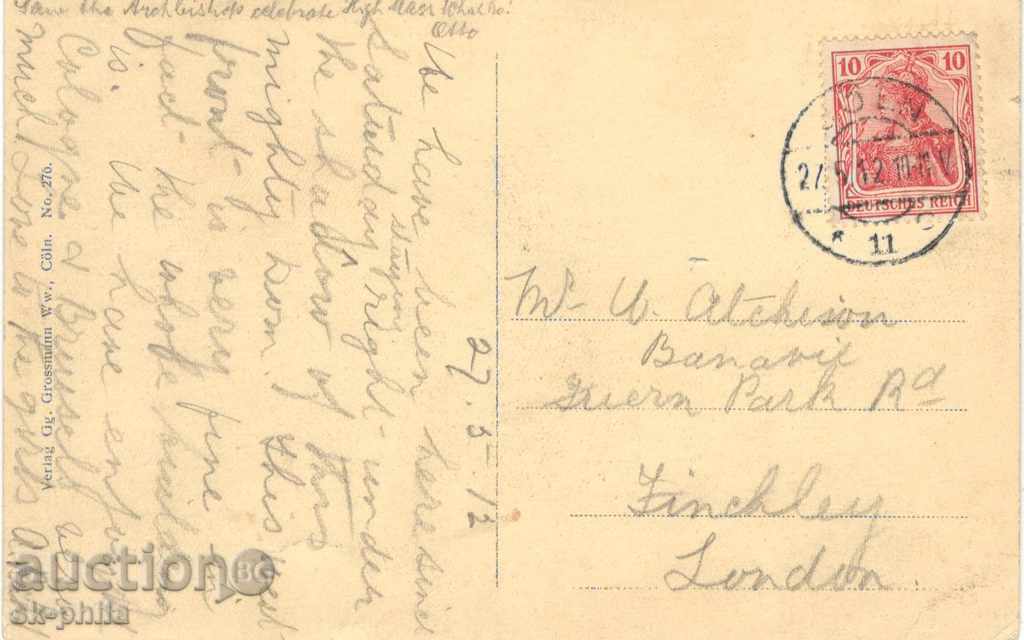 Saw the Archbishop celebrate High Mass What ho!
Otto
27.5.12
We have been here since
Saturday staying right under
the shadow of this
mighty Dom. This west
front is very fine in
fact the whole building
is. We have enjoyed
Cologne & Brussels very
much. Love to the girls
Verlag Gg. Grossmann Ww., Cöln. No. 276.
10 10
DEUTSCHES REICH
COELN
27.5.12 10-11 V
* 11 c
Mr W. Atchison
Banavie
Friern Park Rd
Finchley
London
auction BG
sk-phila